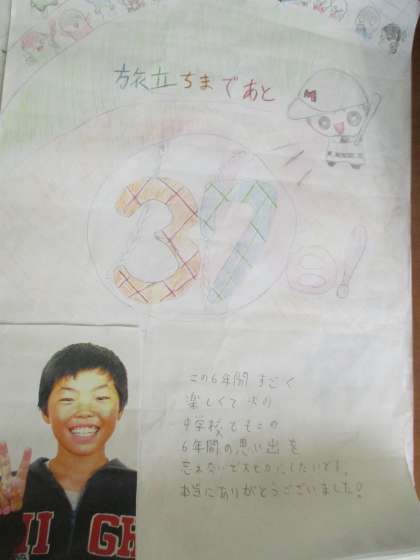 旅立ちまであと
37
日!
この6年間 すごく
楽しくて 次の
中学校でもこの
6年間の思い出を
忘れないで大切にしたいです。
本当にありがとうございました!
HI GH